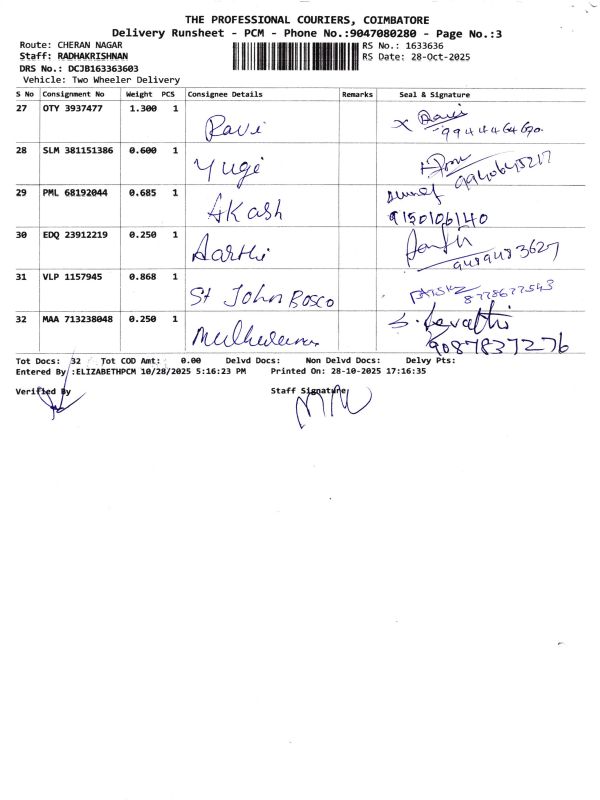 THE PROFESSIONAL COURIERS, COIMBATORE
Delivery Runsheet - PCM - Phone No.:9047080280 - Page No.:3
Route: CHERAN NAGAR RS No.: 1633636
Staff: RADHAKRISHNAN RS Date: 28-Oct-2025
DRS No.: DCJB163363603
Vehicle: Two Wheeler Delivery
S No Consignment No Weight PCS Consignee Details Remarks Seal & Signature
27 OTY 3937477 1.300 1 Ravi x Ravi
28 SLM 381151386 0.600 1 Yugi
9940645217
29 PML 68192044 0.685 1 Akash
9150106140
30 EDQ 23912219 0.250 1 Aarthi Aarthi
9489483627
31 VLP 1157945 0.868 1 St John Bosco
8778677543
32 MAA 713238048 0.250 1 S. Revathi
9087837276
Tot Docs: 32 Tot COD Amt: 0.00 Delvd Docs: Non Delvd Docs: Delvy Pts:
Entered By :ELIZABETHPCM 10/28/2025 5:16:23 PM Printed On: 28-10-2025 17:16:35
Verified By Staff Signature